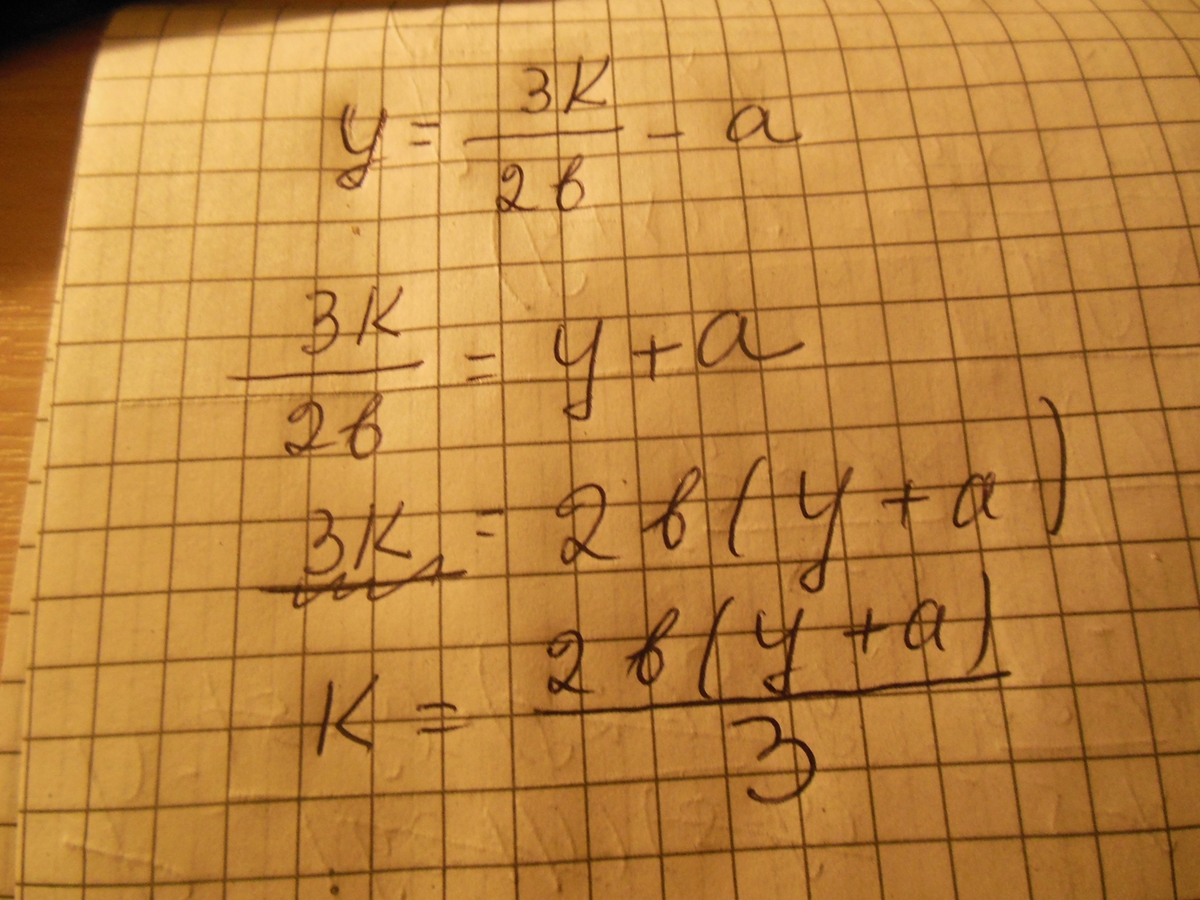 y = 3K/2в - a
3K/2в = y + a
3K = 2в(y + a)
K = 2в(y + a)/3